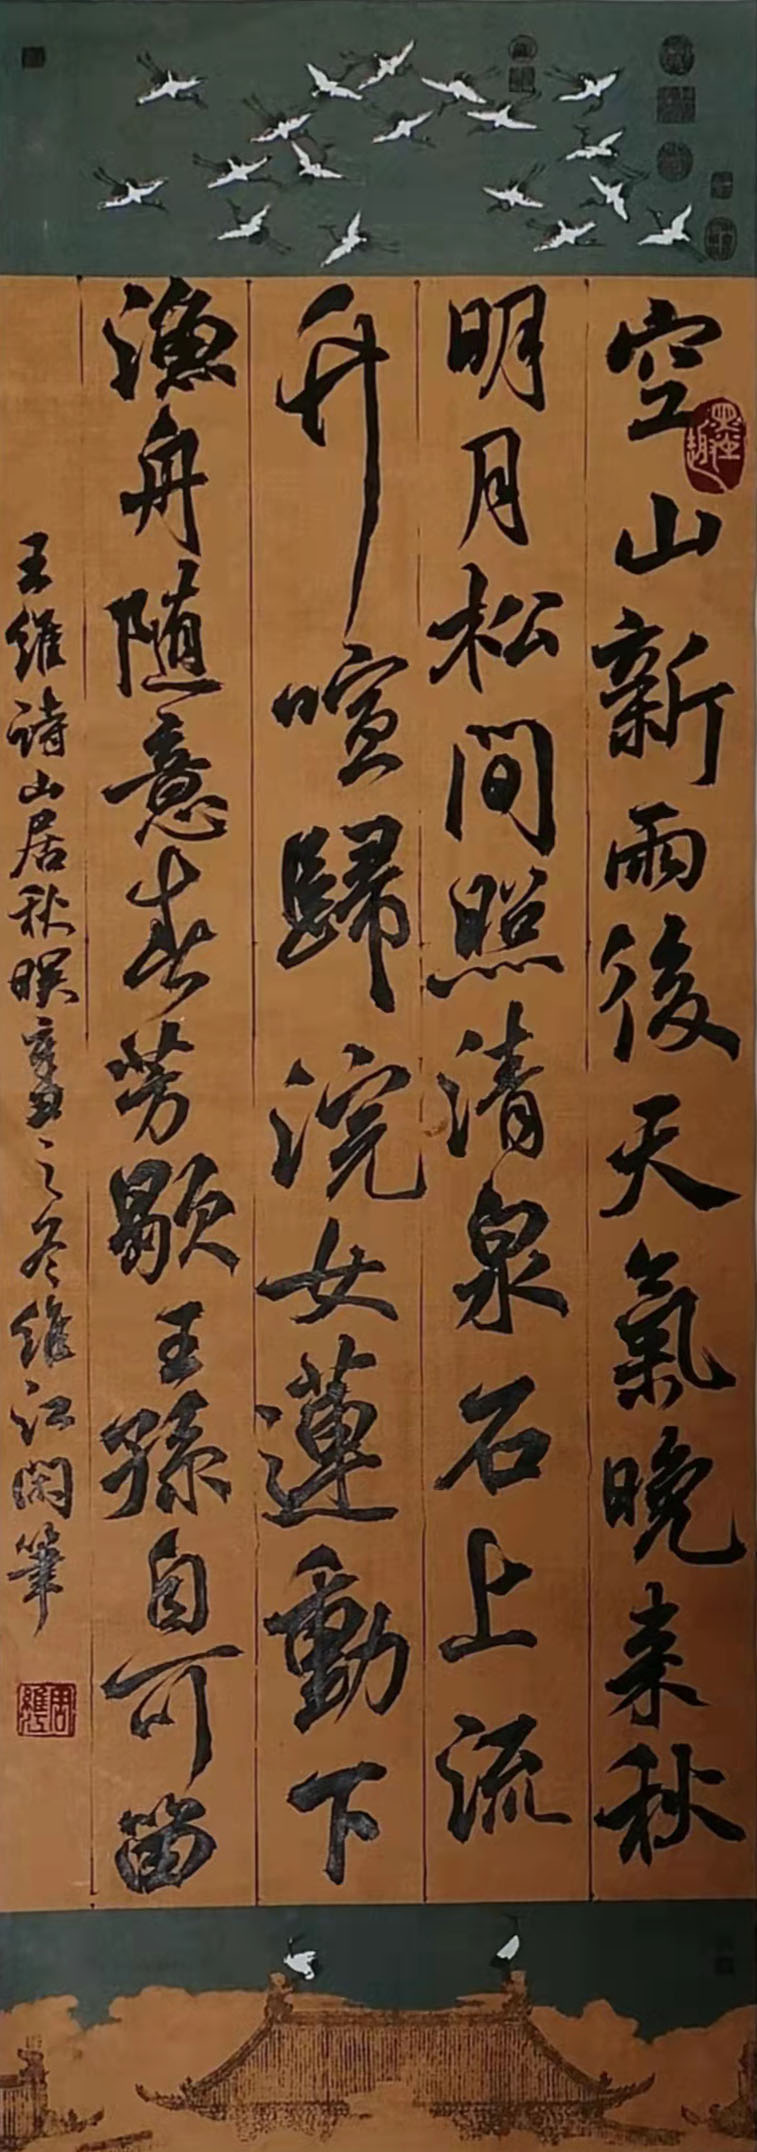 空山新雨後天氣晚来秋
明月松間照清泉石上流
竹喧歸浣女蓮動下
漁舟随意春芳歇王孫自可留
王維詩山居秋暝辛丑之冬維江閑筆